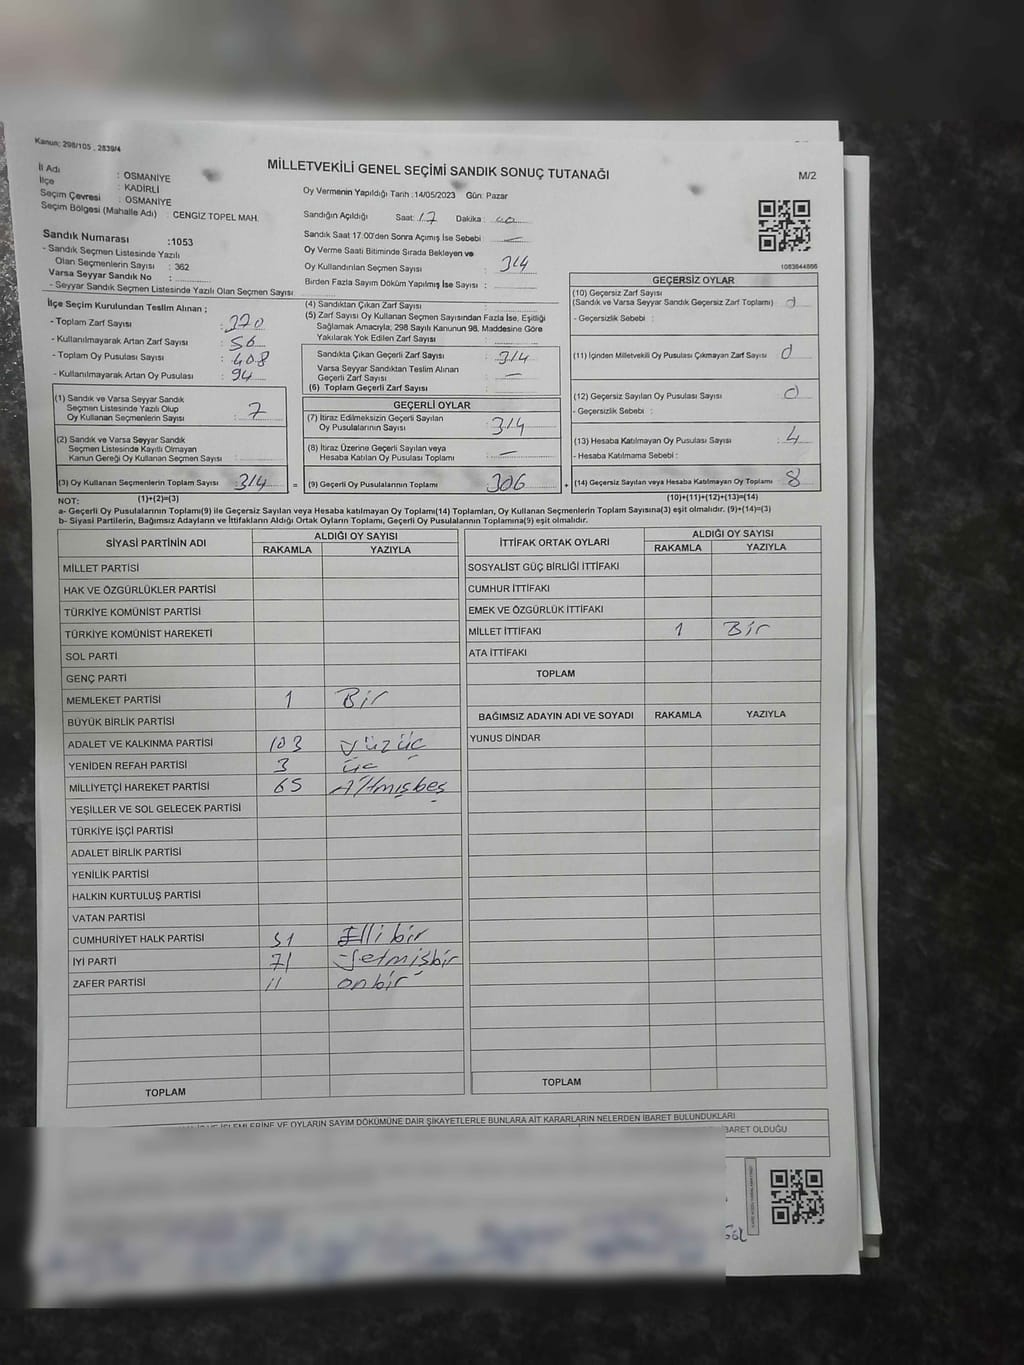 Kanun; 298/105 , 2839/4
MİLLETVEKİLİ GENEL SEÇİMİ SANDIK SONUÇ TUTANAĞI
M/2
İl Adı : OSMANİYE
İlçe : KADİRLİ
Seçim Çevresi : OSMANİYE
Seçim Bölgesi (Mahalle Adı) : CENGİZ TOPEL MAH.
Sandık Numarası :1053
- Sandık Seçmen Listesinde Yazılı
Olan Seçmenlerin Sayısı : 362
Varsa Seyyar Sandık No :
- Seyyar Sandık Seçmen Listesinde Yazılı Olan Seçmen Sayısı
Oy Vermenin Yapıldığı Tarih :14/05/2023 Gün: Pazar
Sandığın Açıldığı Saat: 17 Dakika: 00
Sandık Saat 17:00'den Sonra Açımış İse Sebebi : —
Oy Verme Saati Bitiminde Sırada Bekleyen ve
Oy Kullandırılan Seçmen Sayısı : 314
Birden Fazla Sayım Döküm Yapılmış İse Sayısı :
1083644866
İlçe Seçim Kurulundan Teslim Alınan ;
- Toplam Zarf Sayısı : 370
- Kullanılmayarak Artan Zarf Sayısı : 56
- Toplam Oy Pusulası Sayısı : 408
- Kullanılmayarak Artan Oy Pusulası : 94
(1) Sandık ve Varsa Seyyar Sandık
Seçmen Listesinde Yazılı Olup
Oy Kullanan Seçmenlerin Sayısı : 7
(2) Sandık ve Varsa Seyyar Sandık
Seçmen Listesinde Kayıtlı Olmayan
Kanun Gereği Oy Kullanan Seçmen Sayısı :
(3) Oy Kullanan Seçmenlerin Toplam Sayısı : 314
(4) Sandıktan Çıkan Zarf Sayısı :
(5) Zarf Sayısı Oy Kullanan Seçmen Sayısından Fazla İse, Eşitliği
Sağlamak Amacıyla; 298 Sayılı Kanunun 98. Maddesine Göre
Yakılarak Yok Edilen Zarf Sayısı :
Sandıkta Çıkan Geçerli Zarf Sayısı : 314
Varsa Seyyar Sandıktan Teslim Alınan
Geçerli Zarf Sayısı : —
(6) Toplam Geçerli Zarf Sayısı :
GEÇERLİ OYLAR
(7) İtiraz Edilmeksizin Geçerli Sayılan
Oy Pusulalarının Sayısı : 314
(8) İtiraz Üzerine Geçerli Sayılan veya
Hesaba Katılan Oy Pusulası Toplamı : —
= (9) Geçerli Oy Pusulalarının Toplamı : 306
GEÇERSİZ OYLAR
(10) Geçersiz Zarf Sayısı
(Sandık ve Varsa Seyyar Sandık Geçersiz Zarf Toplamı) : 0
- Geçersizlik Sebebi :
(11) İçinden Milletvekili Oy Pusulası Çıkmayan Zarf Sayısı : 0
(12) Geçersiz Sayılan Oy Pusulası Sayısı : 0
- Geçersizlik Sebebi :
(13) Hesaba Katılmayan Oy Pusulası Sayısı : 4
- Hesaba Katılmama Sebebi :
+ (14) Geçersiz Sayılan veya Hesaba Katılmayan Oy Toplamı : 8
NOT: (1)+(2)=(3) (10)+(11)+(12)+(13)=(14)
a- Geçerli Oy Pusulalarının Toplamı(9) ile Geçersiz Sayılan veya Hesaba katılmayan Oy Toplamı(14) Toplamları, Oy Kullanan Seçmenlerin Toplam Sayısına(3) eşit olmalıdır. (9)+(14)=(3)
b- Siyasi Partilerin, Bağımsız Adayların ve İttifakların Aldığı Ortak Oyların Toplamı, Geçerli Oy Pusulalarının Toplamına(9) eşit olmalıdır.
SİYASİ PARTİNİN ADI ALDIĞI OY SAYISI
RAKAMLA YAZIYLA
MİLLET PARTİSİ
HAK VE ÖZGÜRLÜKLER PARTİSİ
TÜRKİYE KOMÜNİST PARTİSİ
TÜRKİYE KOMÜNİST HAREKETİ
SOL PARTİ
GENÇ PARTİ
MEMLEKET PARTİSİ 1 Bir
BÜYÜK BİRLİK PARTİSİ
ADALET VE KALKINMA PARTİSİ 103 yüzüç
YENİDEN REFAH PARTİSİ 3 üç
MİLLİYETÇİ HAREKET PARTİSİ 65 Altmışbeş
YEŞİLLER VE SOL GELECEK PARTİSİ
TÜRKİYE İŞÇİ PARTİSİ
ADALET BİRLİK PARTİSİ
YENİLİK PARTİSİ
HALKIN KURTULUŞ PARTİSİ
VATAN PARTİSİ
CUMHURİYET HALK PARTİSİ 51 Elli bir
İYİ PARTİ 71 Yetmişbir
ZAFER PARTİSİ 11 onbir
TOPLAM
İTTİFAK ORTAK OYLARI ALDIĞI OY SAYISI
RAKAMLA YAZIYLA
SOSYALİST GÜÇ BİRLİĞİ İTTİFAKI
CUMHUR İTTİFAKI
EMEK VE ÖZGÜRLÜK İTTİFAKI
MİLLET İTTİFAKI 1 Bir
ATA İTTİFAKI
TOPLAM
BAĞIMSIZ ADAYIN ADI VE SOYADI RAKAMLA YAZIYLA
YUNUS DİNDAR
TOPLAM
İŞLEMLERİNE VE OYLARIN SAYIM DÖKÜMÜNE DAİR ŞİKAYETLERLE BUNLARA AİT KARARLARIN NELERDEN İBARET BULUNDUKLARI
BARET OLDUĞU